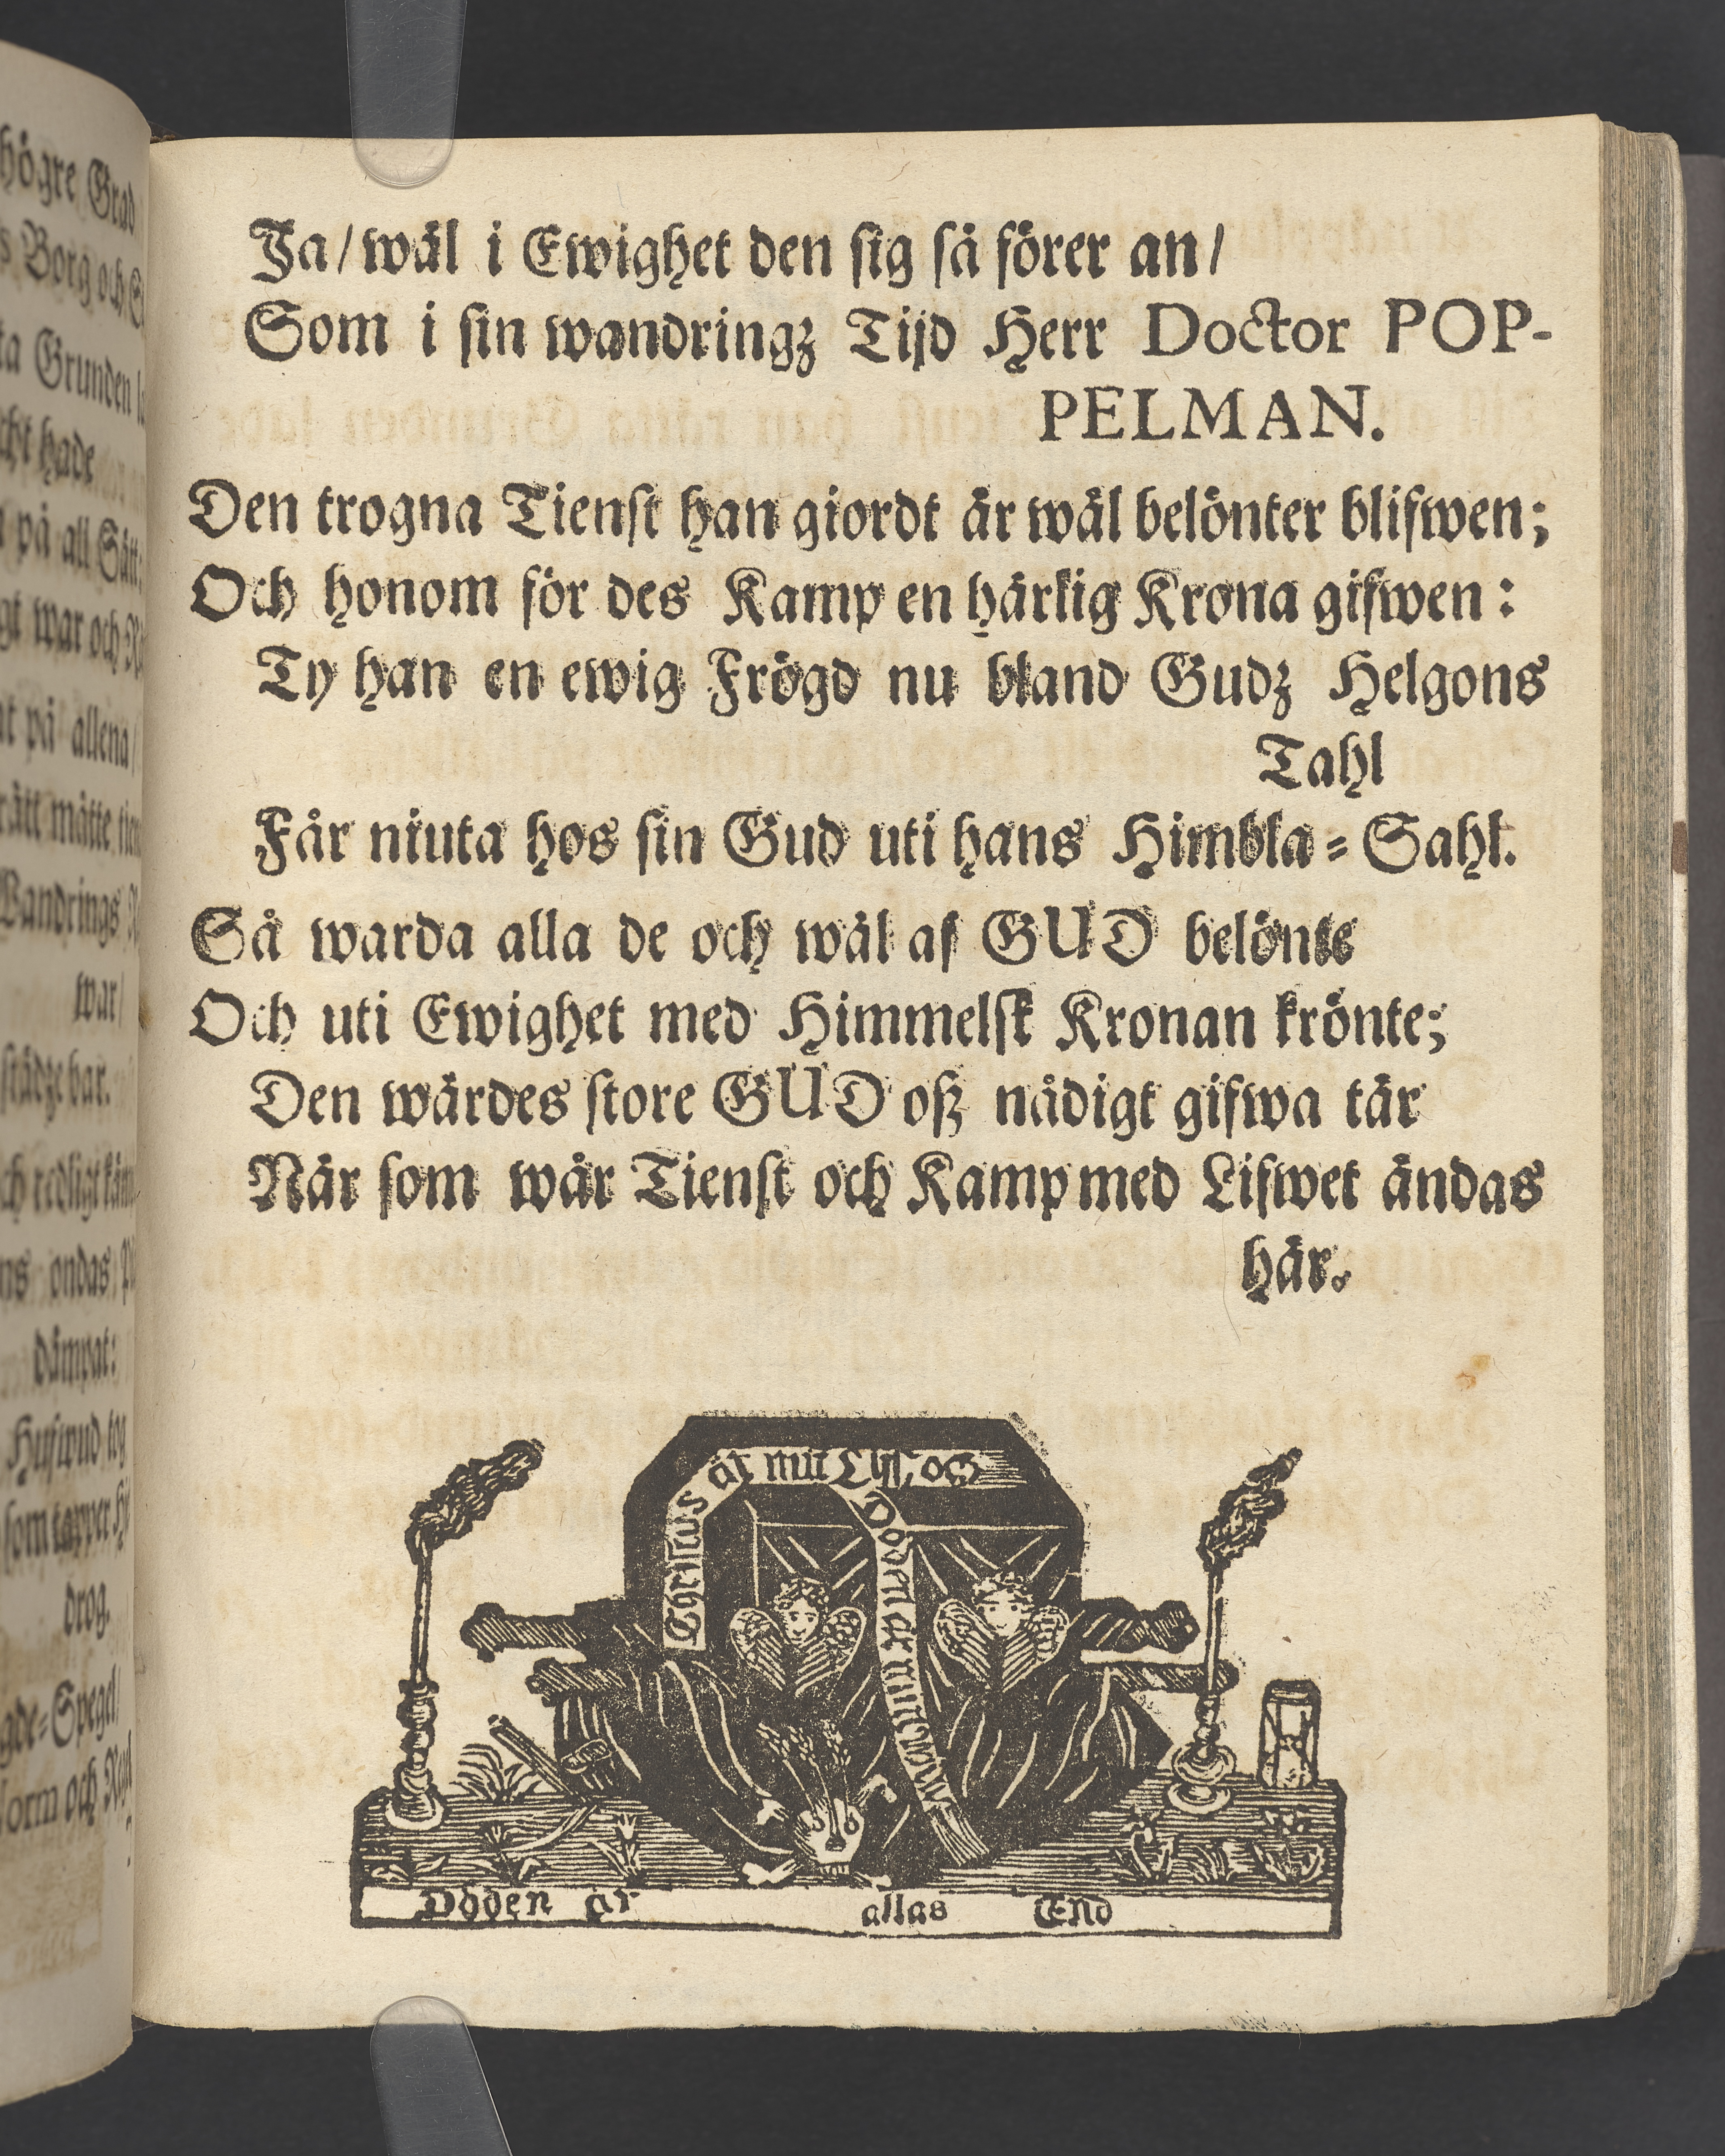 högre Grad
Borg och
Grunden
hade
på all Sätt;
war och
på allena/
rätt måtte
Wandrings
war/
städze bar.
och redligt
ondas
dämpat:
Hufwud
som tapper
drog.
Spegel/
Norm och
Ja/ wäl i Ewighet den sig så förer an/
Som i sin wandringz Tijd Herr Doctor POP-
PELMAN.
Den trogna Tienst han giordt är wäl belönter blifwen;
Och honom för des Kamp en härlig Krona gifwen:
Ty han en ewig Frögd nu bland Gudz Helgons
Tahl
Får niuta hos sin Gud uti hans Himbla-Sahl.
Så warda alla de och wäl af GUD belönte
Och uti Ewighet med Himmelsk Kronan krönte;
Den wärdes store GUD oß nådigt gifwa tär
När som wår Tienst och Kamp med Lifwet ändas
här.
Christus är mitt Lijf, och
Döden är min winning
Döden är allas End